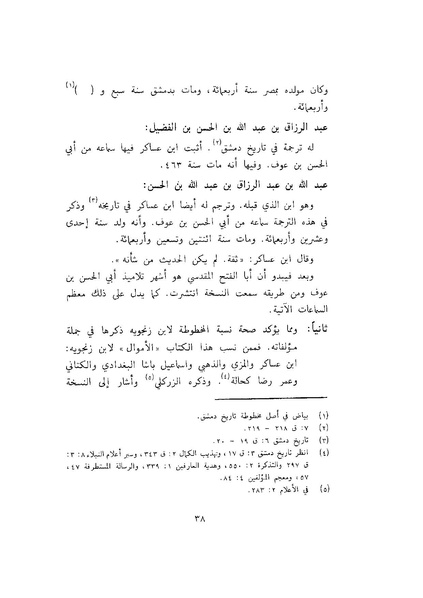 وكان مولده بمصر سنة أربعمائة، ومات بدمشق سنة سبع و (   )(١)
وأربعمائة.
عبد الرزاق بن عبد الله بن الحسن بن الفضيل:
له ترجمة في تاريخ دمشق(٢). أثبت ابن عساكر فيها سماعه من أبي
الحسن بن عوف. وفيها أنه مات سنة ٤٦٣.
عبد الله بن عبد الرزاق بن عبد الله بن الحسن:
وهو ابن الذي قبله. وترجم له أيضا ابن عساكر في تاريخه(٣) وذكر
في هذه الترجمة سماعه من أبي الحسن بن عوف. وأنه ولد سنة إحدى
وعشرين وأربعمائة. ومات سنة اثنتين وتسعين وأربعمائة.
وقال ابن عساكر: «ثقة. لم يكن الحديث من شأنه».
وبعد فيبدو أن أبا الفتح المقدسي هو أشهر تلاميذ أبي الحسن بن
عوف ومن طريقه سمعت النسخة انتشرت. كما يدل على ذلك معظم
السماعات الآتية.
ثانياً: ومما يؤكد صحة نسبة المخطوطة لابن زنجويه ذكرها في جملة
مؤلفاته. فممن نسب هذا الكتاب «الأموال» لابن زنجويه:
ابن عساكر والمزي والذهبي واسماعيل باشا البغدادي والكتاني
وعمر رضا كحالة(٤). وذكره الزركلي(٥) وأشار إلى النسخة
(١) بياض في أصل مخطوطة تاريخ دمشق.
(٢) ٧: ق ٢١٨ - ٢١٩.
(٣) تاريخ دمشق ٦: ق ١٩ - ٢٠.
(٤) انظر تاريخ دمشق ٣: ق ١٧، وتهذيب الكمال ٢: ق ٣٤٣، وسير أعلام النبلاء ٨: ٣:
ق ٢٩٧ والتذكرة ٢: ٥٥٠، وهدية العارفين ١: ٣٣٩، والرسالة المستطرفة ٤٧،
٥٧، ومعجم المؤلفين ٤: ٨٤.
(٥) في الأعلام ٢: ٢٨٣.
٣٨